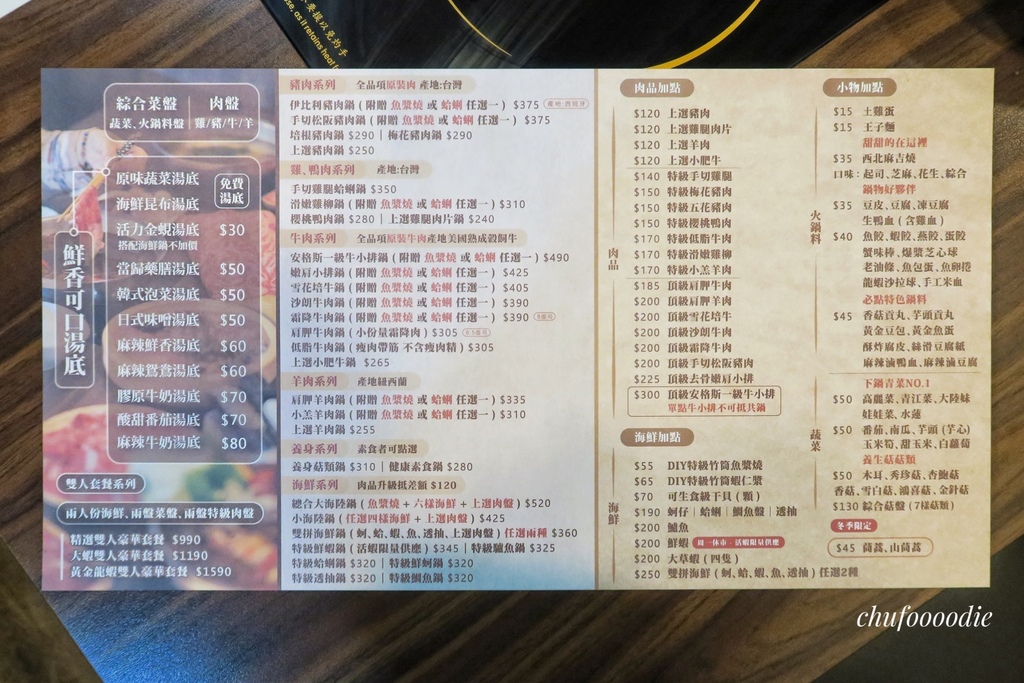 綜合菜盤 肉盤
蔬菜、火鍋料盤 雞/豬/牛/羊
鮮香可口湯底
原味蔬菜湯底 免費湯底
海鮮昆布湯底
活力金蜆湯底 $30
搭配海鮮鍋不加價
當歸藥膳湯底 $50
韓式泡菜湯底 $50
日式味噌湯底 $50
麻辣鮮香湯底 $60
麻辣鴛鴦湯底 $60
膠原牛奶湯底 $70
酸甜番茄湯底 $70
麻辣牛奶湯底 $80
雙人套餐系列
兩人份海鮮、兩盤菜盤、兩盤特級肉盤
精選雙人豪華套餐 $990
大蝦雙人豪華套餐 $1190
黃金龍蝦雙人豪華套餐 $1590
豬肉系列 全品項原裝肉 產地:台灣
伊比利豬肉鍋 ( 附贈 魚漿燒 或 蛤蜊 任選一 ) $375 產地:西班牙
手切松阪豬肉鍋 ( 附贈 魚漿燒 或 蛤蜊 任選一 ) $375
培根豬肉鍋 $290 | 梅花豬肉鍋 $290
上選豬肉鍋 $250
雞、鴨肉系列 產地:台灣
手切雞腿蛤蜊鍋 $350
滑嫩雞柳鍋 ( 附贈 魚漿燒 或 蛤蜊 任選一 ) $310
櫻桃鴨肉鍋 $280 | 上選雞腿肉片鍋 $240
牛肉系列 全品項原裝牛肉產地美國熟成穀飼牛
安格斯一級牛小排鍋 ( 附贈 魚漿燒 或 蛤蜊 任選一 ) $490
嫩肩小排鍋 ( 附贈 魚漿燒 或 蛤蜊 任選一 ) $425
雪花培牛鍋 ( 附贈 魚漿燒 或 蛤蜊 任選一 ) $405
沙朗牛肉鍋 ( 附贈 魚漿燒 或 蛤蜊 任選一 ) $390
霜降牛肉鍋 ( 附贈 魚漿燒 或 蛤蜊 任選一 ) $390
肩胛牛肉鍋 ( 小份量霜降肉 ) $305
低脂牛肉鍋 ( 瘦肉帶筋 不含瘦肉精 ) $305
上選小肥牛鍋 $265
羊肉系列 產地紐西蘭
肩胛羊肉鍋 ( 附贈 魚漿燒 或 蛤蜊 任選一 ) $335
小羔羊肉鍋 ( 附贈 魚漿燒 或 蛤蜊 任選一 ) $310
上選羊肉鍋 $255
養身系列 素食者可點選
養身菇類鍋 $310 | 健康素食鍋 $280
海鮮系列 肉品升級抵差額 $120
總合大海陸鍋 ( 魚漿燒 + 六樣海鮮 + 上選肉盤 ) $520
小海陸鍋 ( 任選四樣海鮮 + 上選肉盤 ) $425
雙拼海鮮鍋 ( 蚵、蛤、蝦、魚、透抽、上選肉盤 ) 任選兩種 $360
特級鮮蝦鍋 ( 活蝦限量供應 ) $345 | 特級鱸魚鍋 $325
特級蛤蜊鍋 $320 | 特級鮮蚵鍋 $320
特級透抽鍋 $320 | 特級鯛魚鍋 $320
肉品加點
肉品
$120 上選豬肉
$120 上選雞腿肉片
$120 上選羊肉
$120 上選小肥牛
$140 特級手切雞腿
$150 特級梅花豬肉
$150 特級五花豬肉
$150 特級櫻桃鴨肉
$170 特級低脂牛肉
$170 特級滑嫩雞柳
$170 特級小羔羊肉
$185 頂級肩胛牛肉
$200 頂級肩胛羊肉
$200 頂級雪花培牛
$200 頂級沙朗牛肉
$200 頂級霜降牛肉
$200 頂級手切松阪豬肉
$225 頂級去骨嫩肩小排
$300 頂級安格斯一級牛小排
單點牛小排不可抵共鍋
海鮮加點
海鮮
$55 DIY特級竹筒魚漿燒
$65 DIY特級竹筒蝦仁漿
$70 可生食級干貝 ( 顆 )
$190 蚵仔 | 蛤蜊 | 鯛魚盤 | 透抽
$200 鱸魚
$200 鮮蝦 周一休市 - 活蝦限量供應
$200 大草蝦 ( 四隻 )
$250 雙拼海鮮 ( 蚵、蛤、蝦、魚、透抽 ) 任選2種
小物加點
火鍋料
$15 土雞蛋
$15 王子麵
甜甜的在這裡
$35 西北麻吉燒
口味：起司、芝麻、花生、綜合
鍋物好夥伴
$35 豆皮、豆腐、凍豆腐
生鴨血 ( 含雞血 )
$40 魚餃、蝦餃、燕餃、蛋餃
蟹味棒、爆漿芝心球
老油條、魚包蛋、魚卵捲
龍蝦沙拉球、手工米血
必點特色鍋料
$45 香菇貢丸、芋頭貢丸
黃金豆包、黃金魚蛋
酥炸腐皮、絲滑豆腐紙
麻辣滷鴨血、麻辣滷豆腐
蔬菜
下鍋青菜NO.1
$50 高麗菜、青江菜、大陸妹
娃娃菜、水蓮
$50 番茄、南瓜、芋頭 (芋心)
玉米筍、甜玉米、白蘿蔔
養生菇菇類
$50 木耳、秀珍菇、杏鮑菇
香菇、雪白菇、鴻喜菇、金針菇
$130 綜合菇盤 (7樣菇類)
冬季限定
$45 茼蒿、山茼蒿
chufoooodie